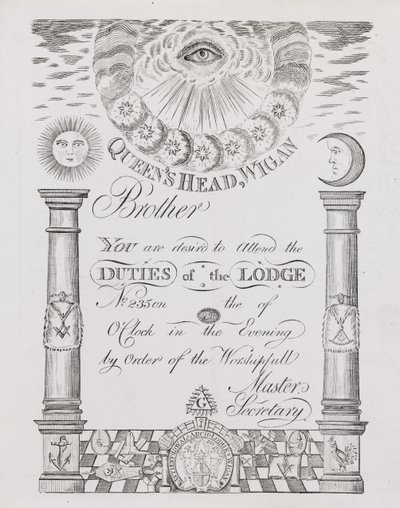 QUEEN'S HEAD, WIGAN
Brother
YOU are desir'd to Attend the
DUTIES of the LODGE
No. 235 on the of
O'Clock in the Evening
by Order of the Worshipfull
Master,
Secretary
G